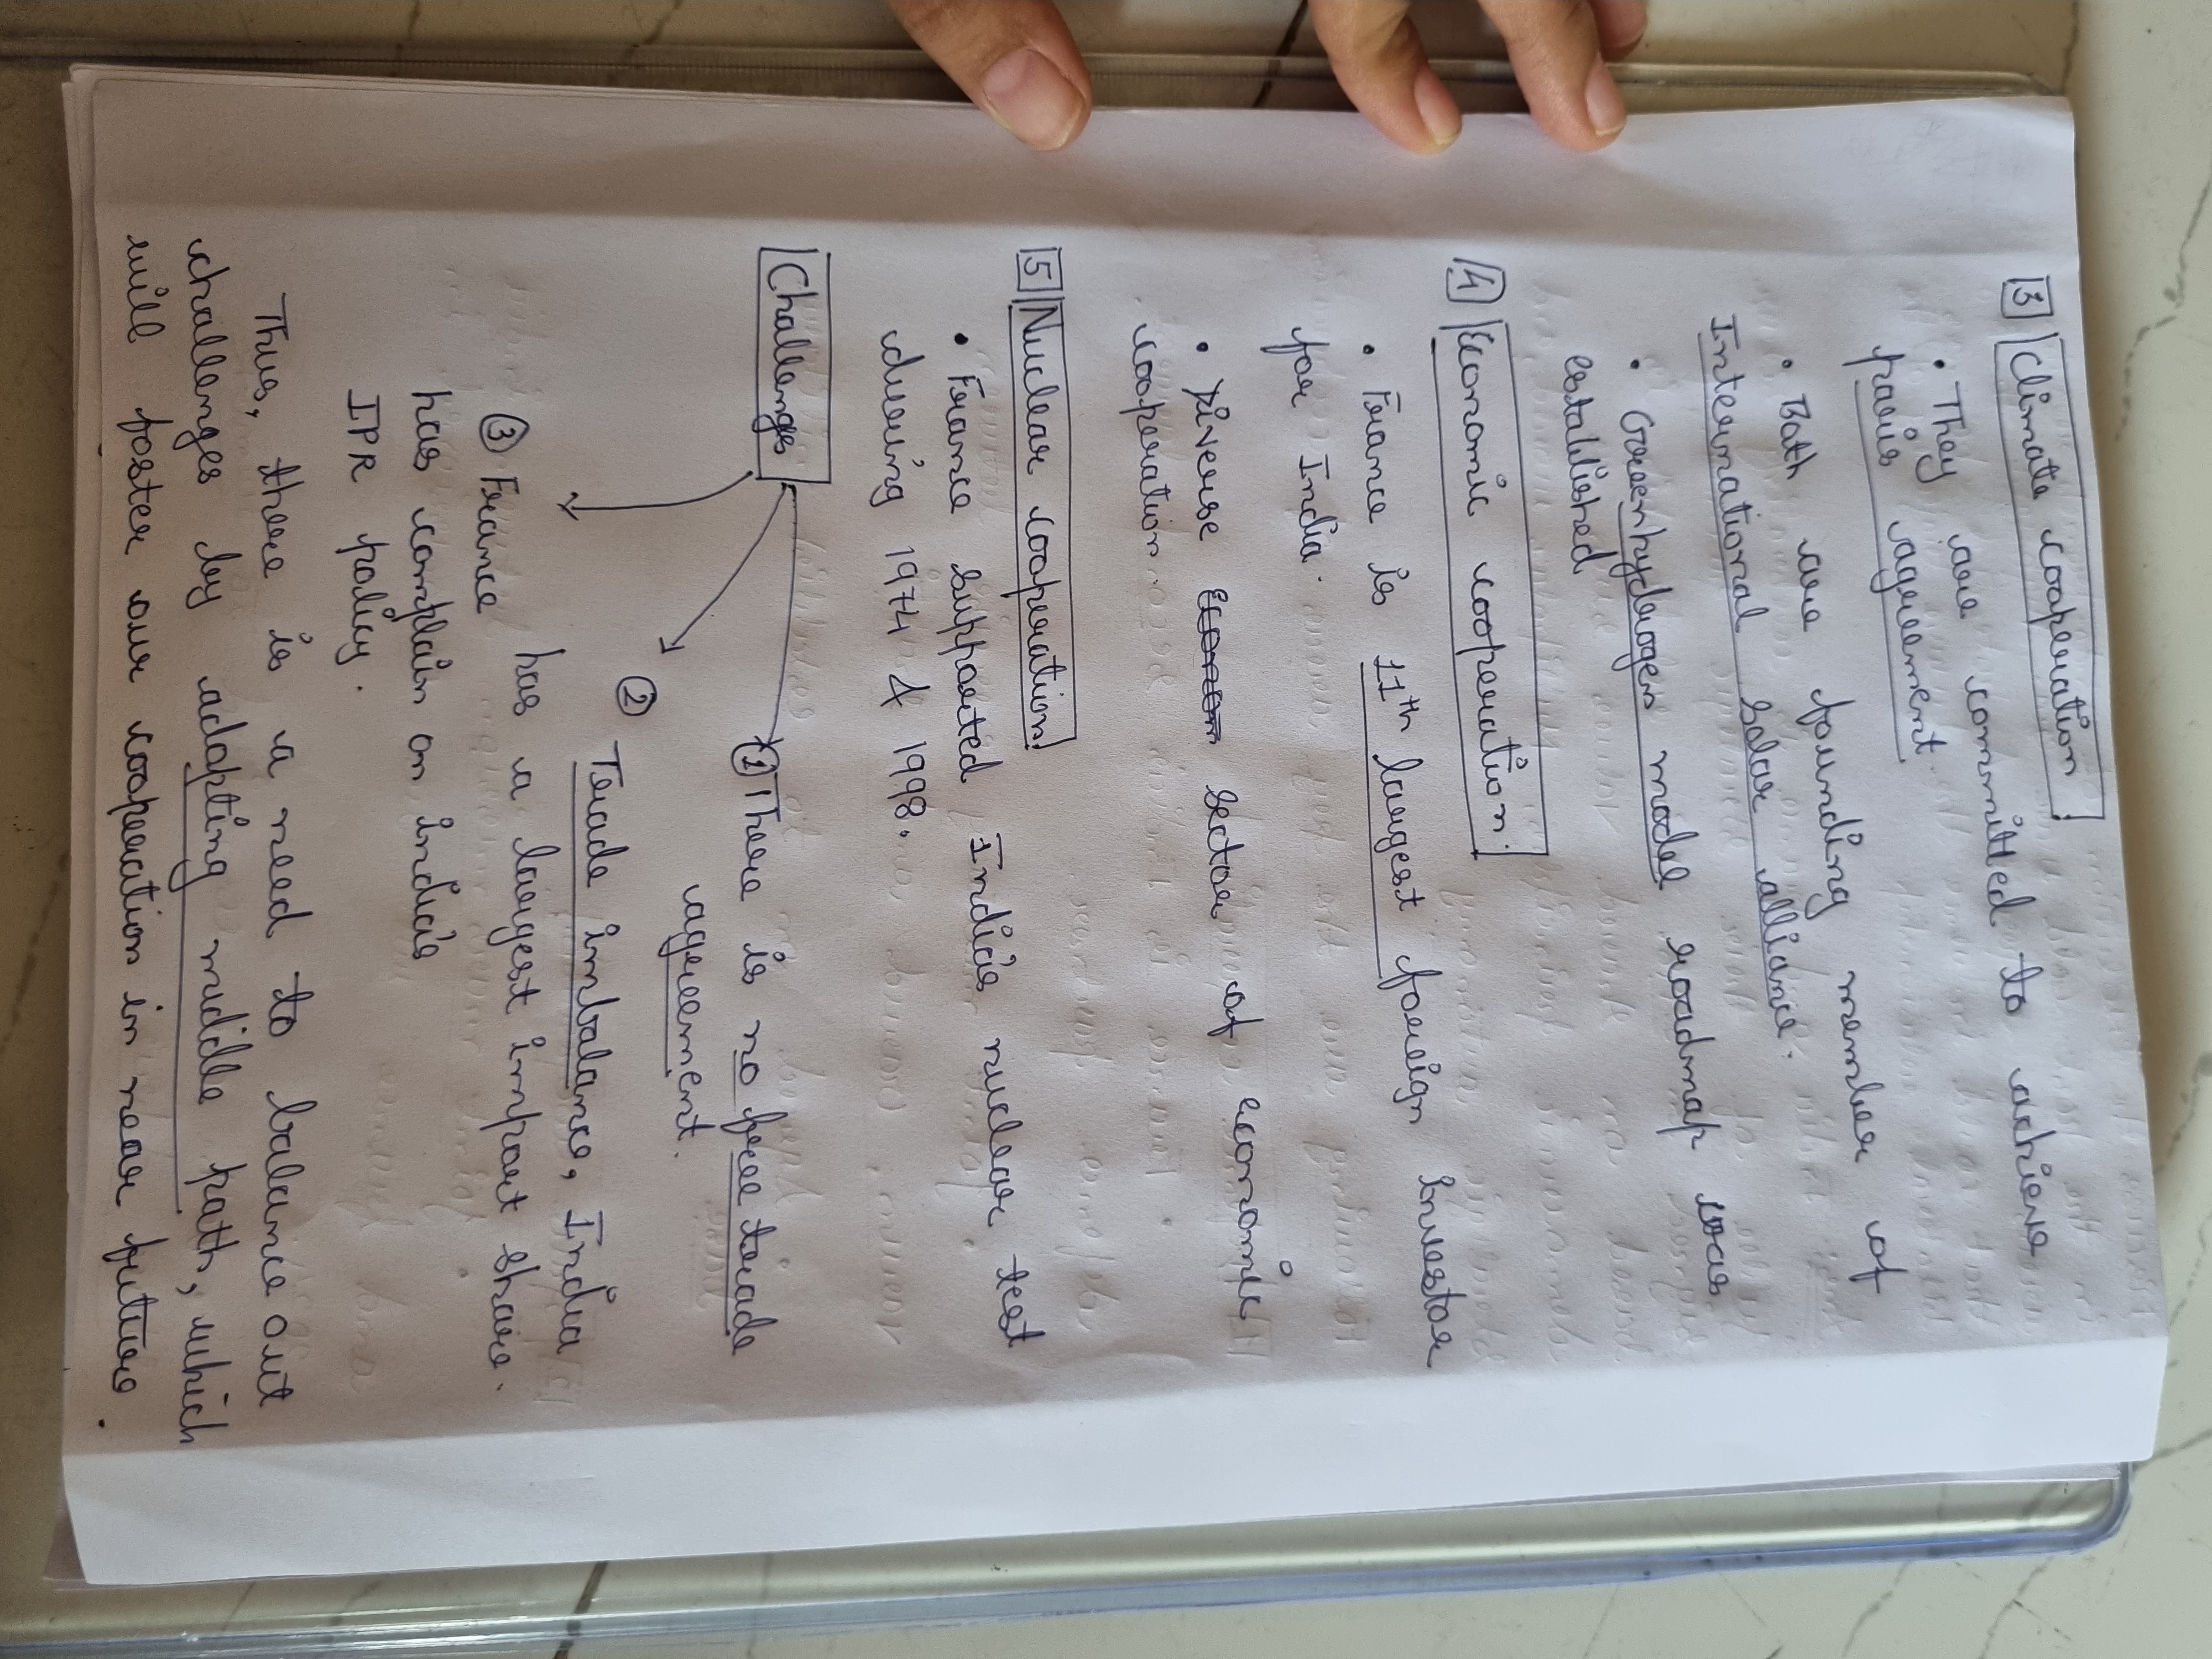 3 Climate cooperation
• They are committed to achieve
paris agreement.
• Both are founding member of
International solar alliance.
• Greenhydrogen model roadmap was
established
4 Economic cooperation
• France is 11th largest foreign investor
for India.
• Diverse sector of economic
cooperation
5 Nuclear cooperation
• France supported India's nuclear test
during 1974 & 1998.
Challenges
① There is no free trade
agreement.
② Trade imbalance, India
has a largest import share.
③ France
has complain on india's
IPR policy.
Thus, there is a need to balance out
challenges by adopting middle path, which
will foster our cooperation in near future.